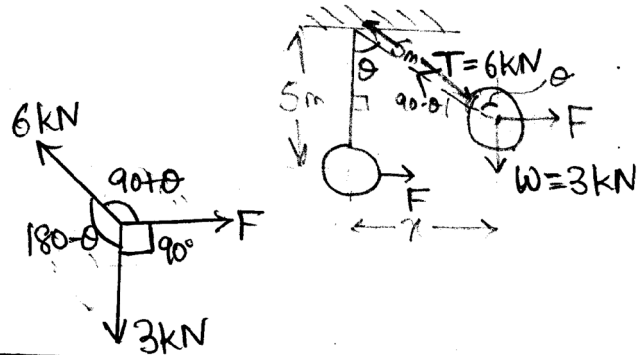 6kN
90+θ
180-θ
90°
F
3kN
5m
θ
5m
T=6kN
θ
90-θ
F
W=3kN
F
x